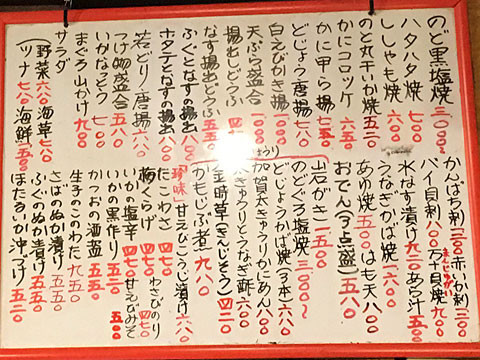 のど黒塩焼 三、〇〇〇
ハタハタ焼 七〇〇
ししゃも焼 六〇〇
のど丸干いか焼 五五〇
かにコロッケ 六五〇
かに甲ら揚 七五〇
どじょう唐揚 七八〇
白えびかき揚 一〇〇〇
天ぷら盛合 一〇〇〇
揚出しどうふ
なす揚出どうふ 五五〇
ふぐとなすの揚出
ホタテとなすの揚出
若どり唐揚 六八〇
つけ物盛合 五八〇
いかなっとう 五八〇
まぐろ山かけ 九〇〇
サラダ
(野菜 六〇〇 海草 七八〇
ツナ 七八〇 海鮮
かんぱち刺 赤いか刺
バイ貝刺 八八〇 万十貝焼 九〇〇
水なす漬け 九二〇 あら汁 五五〇
うなぎかば焼
あゆ焼 五五〇 はも天 八〇〇
おでん(今点盛) 八五〇
岩がき 一、五〇〇
のどぐろ塩焼 三、〇〇〇〜
どじょうかば焼(3本) 六六〇
加賀太きゅうりかにあん
太きゅうりとうなぎ酢 六八〇
金時草(きんじそう) 四二〇
かもじぶ煮 九八〇
珍味 甘えびこうじ漬け 六八〇
たこわさ 四七〇 わさびのり 四七〇
梅くらげ 四七〇 甘えびみそ 五〇〇
いかの塩辛
いかの黒作り 五五〇
かつおの酒盗 五五〇
生子のこのわた 九五〇
さばのぬか漬け
ふぐのぬか漬け 五五〇
ほたるいか沖づけ 五五〇